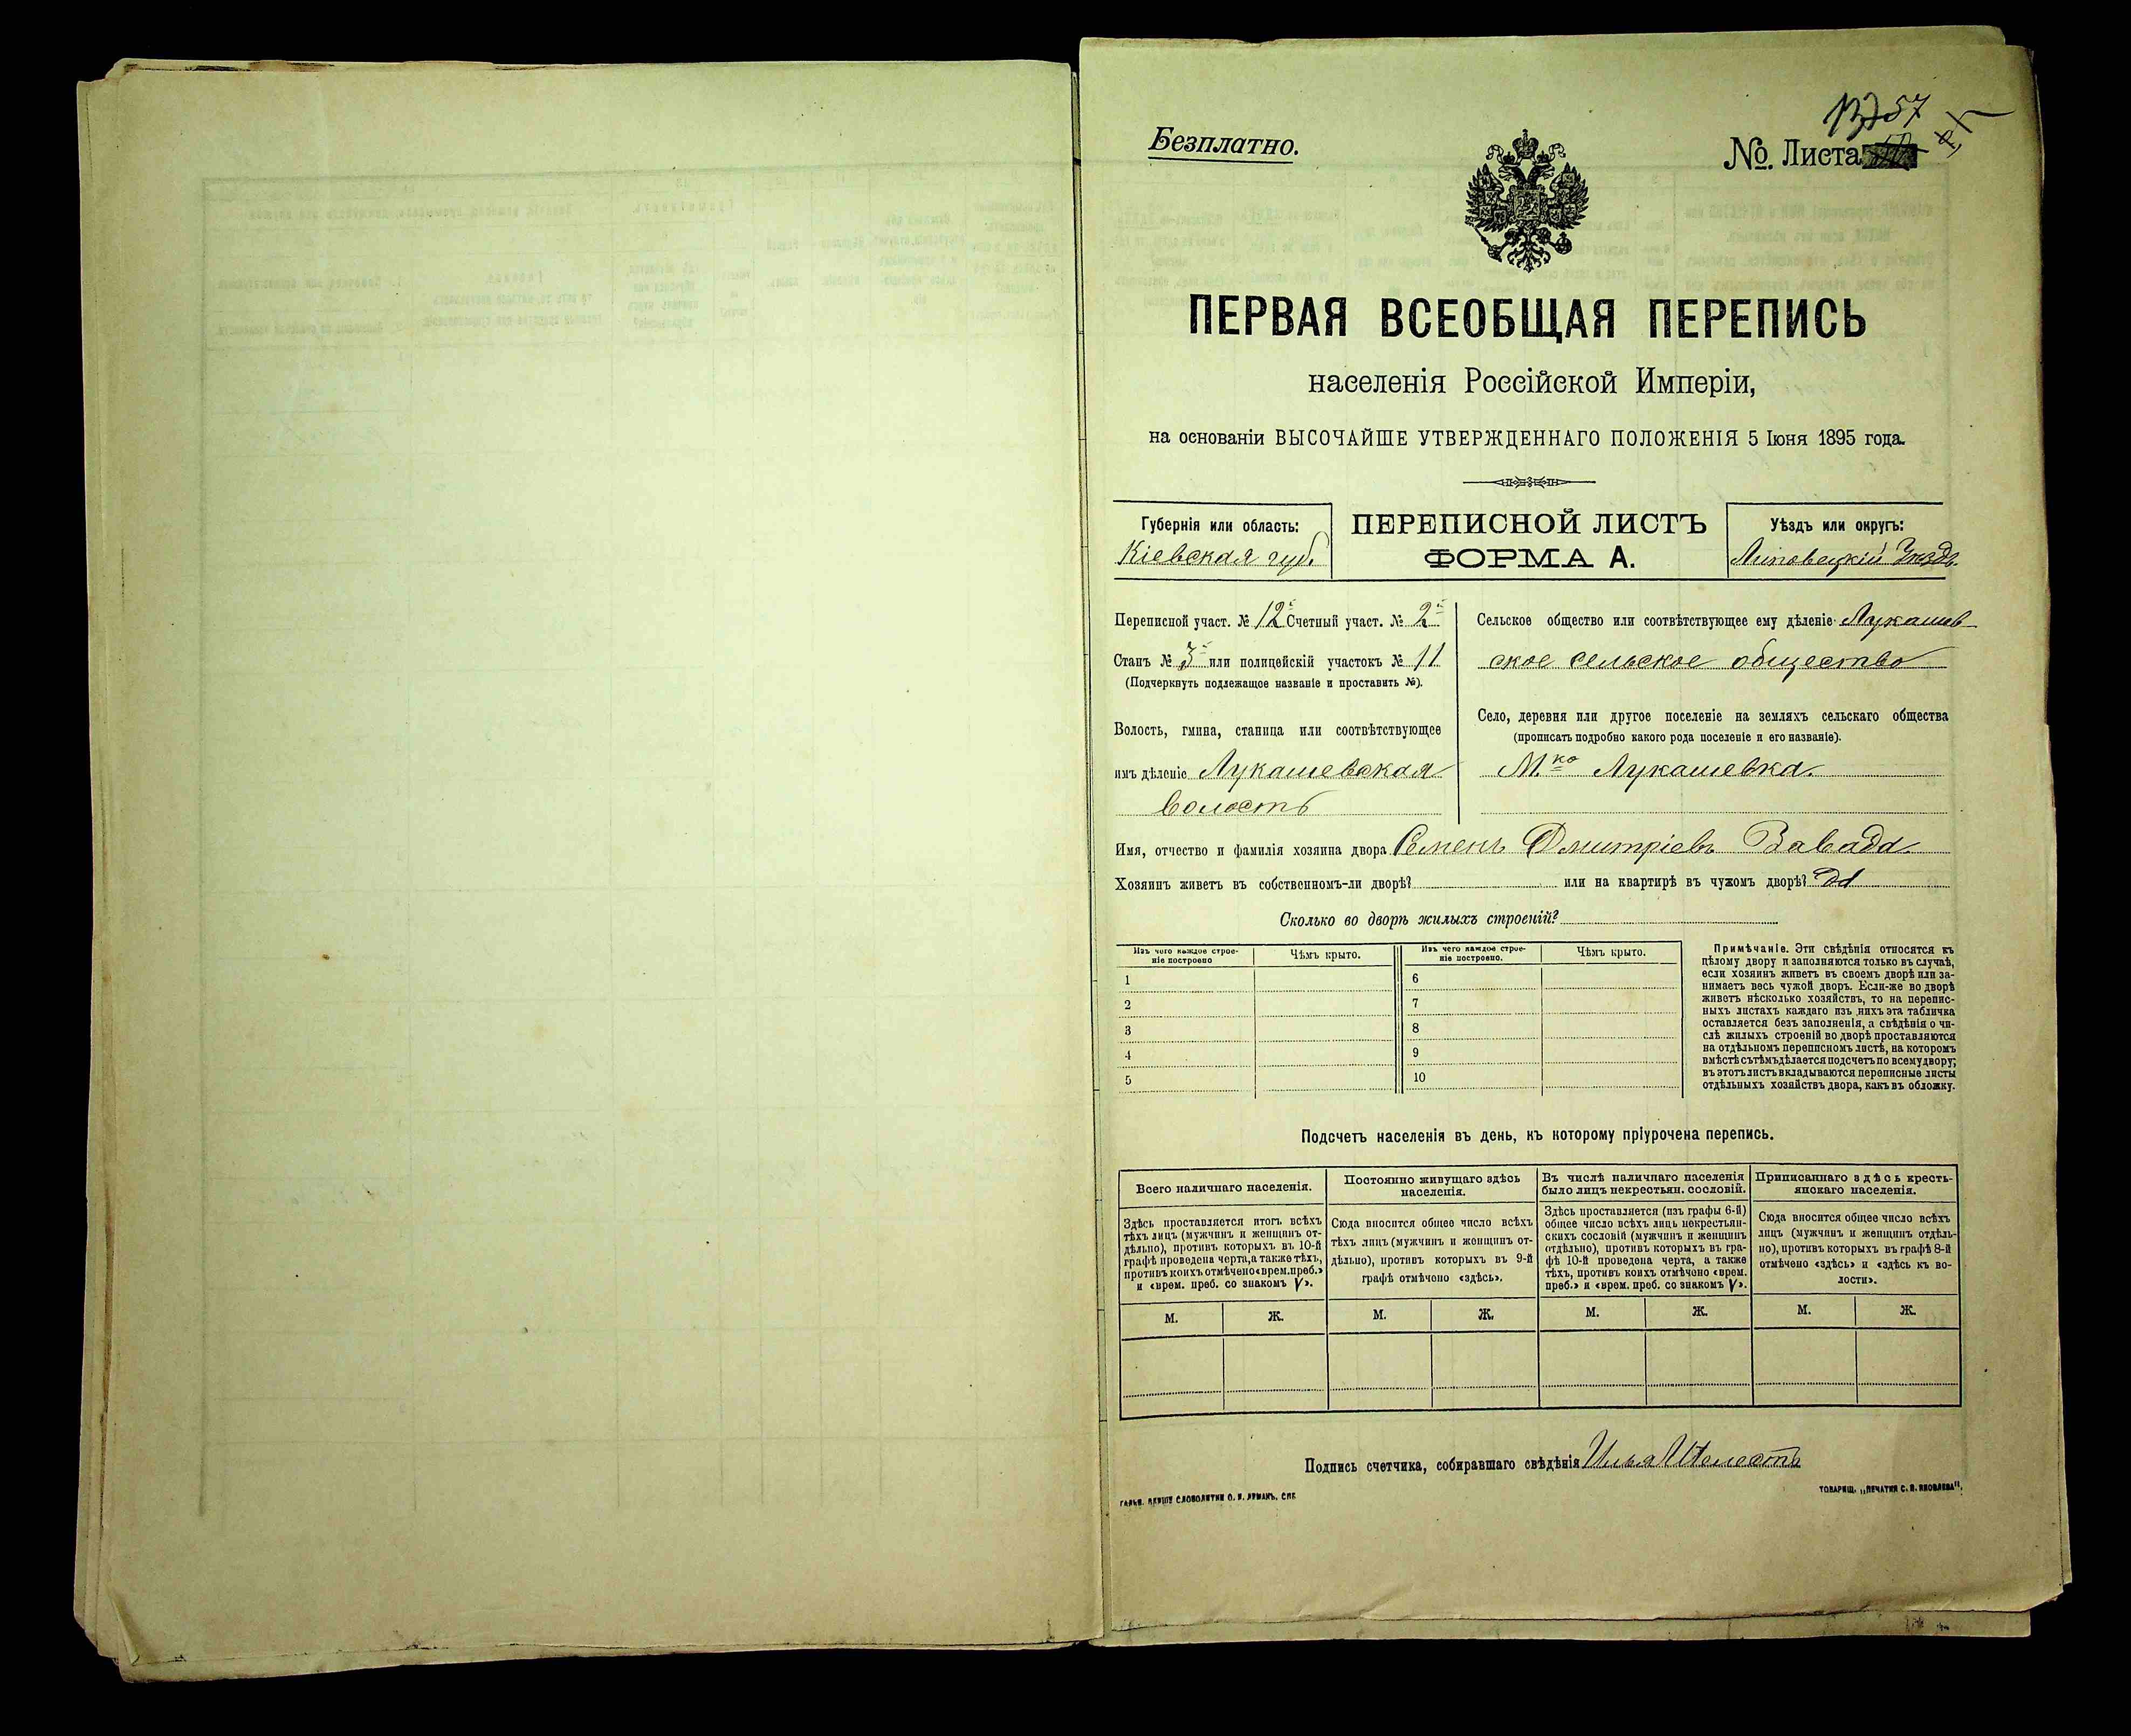 Безплатно.
57
№. Листа
ПЕРВАЯ ВСЕОБЩАЯ ПЕРЕПИСЬ
населенія Россійской Имперіи,
на основаніи ВЫСОЧАЙШЕ УТВЕРЖДЕННАГО ПОЛОЖЕНІЯ 5 Іюня 1895 года.
Губернія или область:
Кіевская губ.
ПЕРЕПИСНОЙ ЛИСТЪ
ФОРМА А.
Уѣздъ или округъ:
Липовецкій Уѣздъ.
Переписной участ. № 12й Счетный участ. № 2й
Станъ № 3 или полицейскій участокъ № 11
(Подчеркнуть подлежащое названіе и проставить №).
Волость, гмина, станица или соотвѣтствующее
имъ дѣленіе Лукашевская
волость
Сельское общество или соотвѣтствующее ему дѣленіе Лукашев-
ское сельское общество
Село, деревня или другое поселеніе на земляхъ сельскаго общества
(прописать подробно какого рода поселеніе и его названіе).
М.ко Лукашевка.
Имя, отчество и фамилія хозяина двора Семенъ Дмитріевъ Завада.
Хозяинъ живетъ въ собственномъ-ли дворѣ? или на квартирѣ въ чужомъ дворѣ? Да
Сколько во дворѣ жилыхъ строеній?
Изъ чего каждое строе-
ніе построено
Чѣмъ крыто.
1
2
3
4
5
Изъ чего каждое строе-
ніе построено.
Чѣмъ крыто.
6
7
8
9
10
Примѣчаніе. Эти свѣдѣнія относятся къ
цѣлому двору и заполняются только въ случаѣ,
если хозяинъ живетъ въ своемъ дворѣ или за-
нимаетъ весь чужой дворъ. Если-же во дворѣ
живетъ нѣсколько хозяйствъ, то на перепис-
ныхъ листахъ каждаго изъ нихъ эта табличка
оставляется безъ заполненія, а свѣдѣнія о чи-
слѣ жилыхъ строеній во дворѣ проставляются
на отдѣльномъ переписномъ листѣ, на которомъ
вмѣстѣ съ тѣмъ дѣлается подсчетъ по всему двору;
въ этотъ листъ вкладываются переписные листы
отдѣльныхъ хозяйствъ двора, какъ въ обложку.
Подсчетъ населенія въ день, къ которому пріурочена перепись.
Всего наличнаго населенія.
Здѣсь проставляется итогъ всѣхъ
тѣхъ лицъ (мужчинъ и женщинъ от-
дѣльно), противъ которыхъ въ 10-й
графѣ проведена черта, а также тѣхъ,
противъ коихъ отмѣчено «врем. преб.»
и «врем. преб. со знакомъ V».
М. Ж.
Постоянно живущаго здѣсь
населенія.
Сюда вносится общее число всѣхъ
тѣхъ лицъ (мужчинъ и женщинъ от-
дѣльно), противъ которыхъ въ 9-й
графѣ отмѣчено «здѣсь».
М. Ж.
Въ числѣ наличнаго населенія
было лицъ некрестьян. сословій.
Здѣсь проставляется (изъ графы 6-й)
общее число всѣхъ лицъ некрестьян-
скихъ сословій (мужчинъ и женщинъ
отдѣльно), противъ которыхъ въ гра-
фѣ 10-й проведена черта, а также
тѣхъ, противъ коихъ отмѣчено «врем.
преб.» и «врем. преб. со знакомъ V».
М. Ж.
Приписаннаго здѣсь кресть-
янскаго населенія.
Сюда вносится общее число всѣхъ
лицъ (мужчинъ и женщинъ отдѣль-
но), противъ которыхъ въ графѣ 8-й
отмѣчено «здѣсь» и «здѣсь къ во-
лости».
М. Ж.
Подпись счетчика, собиравшаго свѣдѣнія Илья
СЛОВОЛИТНИ О. И. ЛЕМАНЪ, СПБ
ТОВАРИЩ. „ПЕЧАТНЯ С. П. ЯКОВЛЕВА".